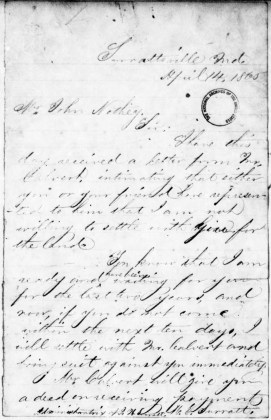 Surrattsville Md.
April 14, 1865
Mr. John Nothey
Sir:
I have this
day received a letter from Mr.
Calvert, intimating that either
you or your friend have represen-
ted to him that I am not
willing to settle with you for
the land.
You know that I am
ready and waiting for you
for the last two years, and
now, if you do not come
within the next ten days, I
will settle with Mr. Calvert and
bring suit against you immediately.
Mr. Calvert will give you
a deed on receiving payment
M. E. Surratt